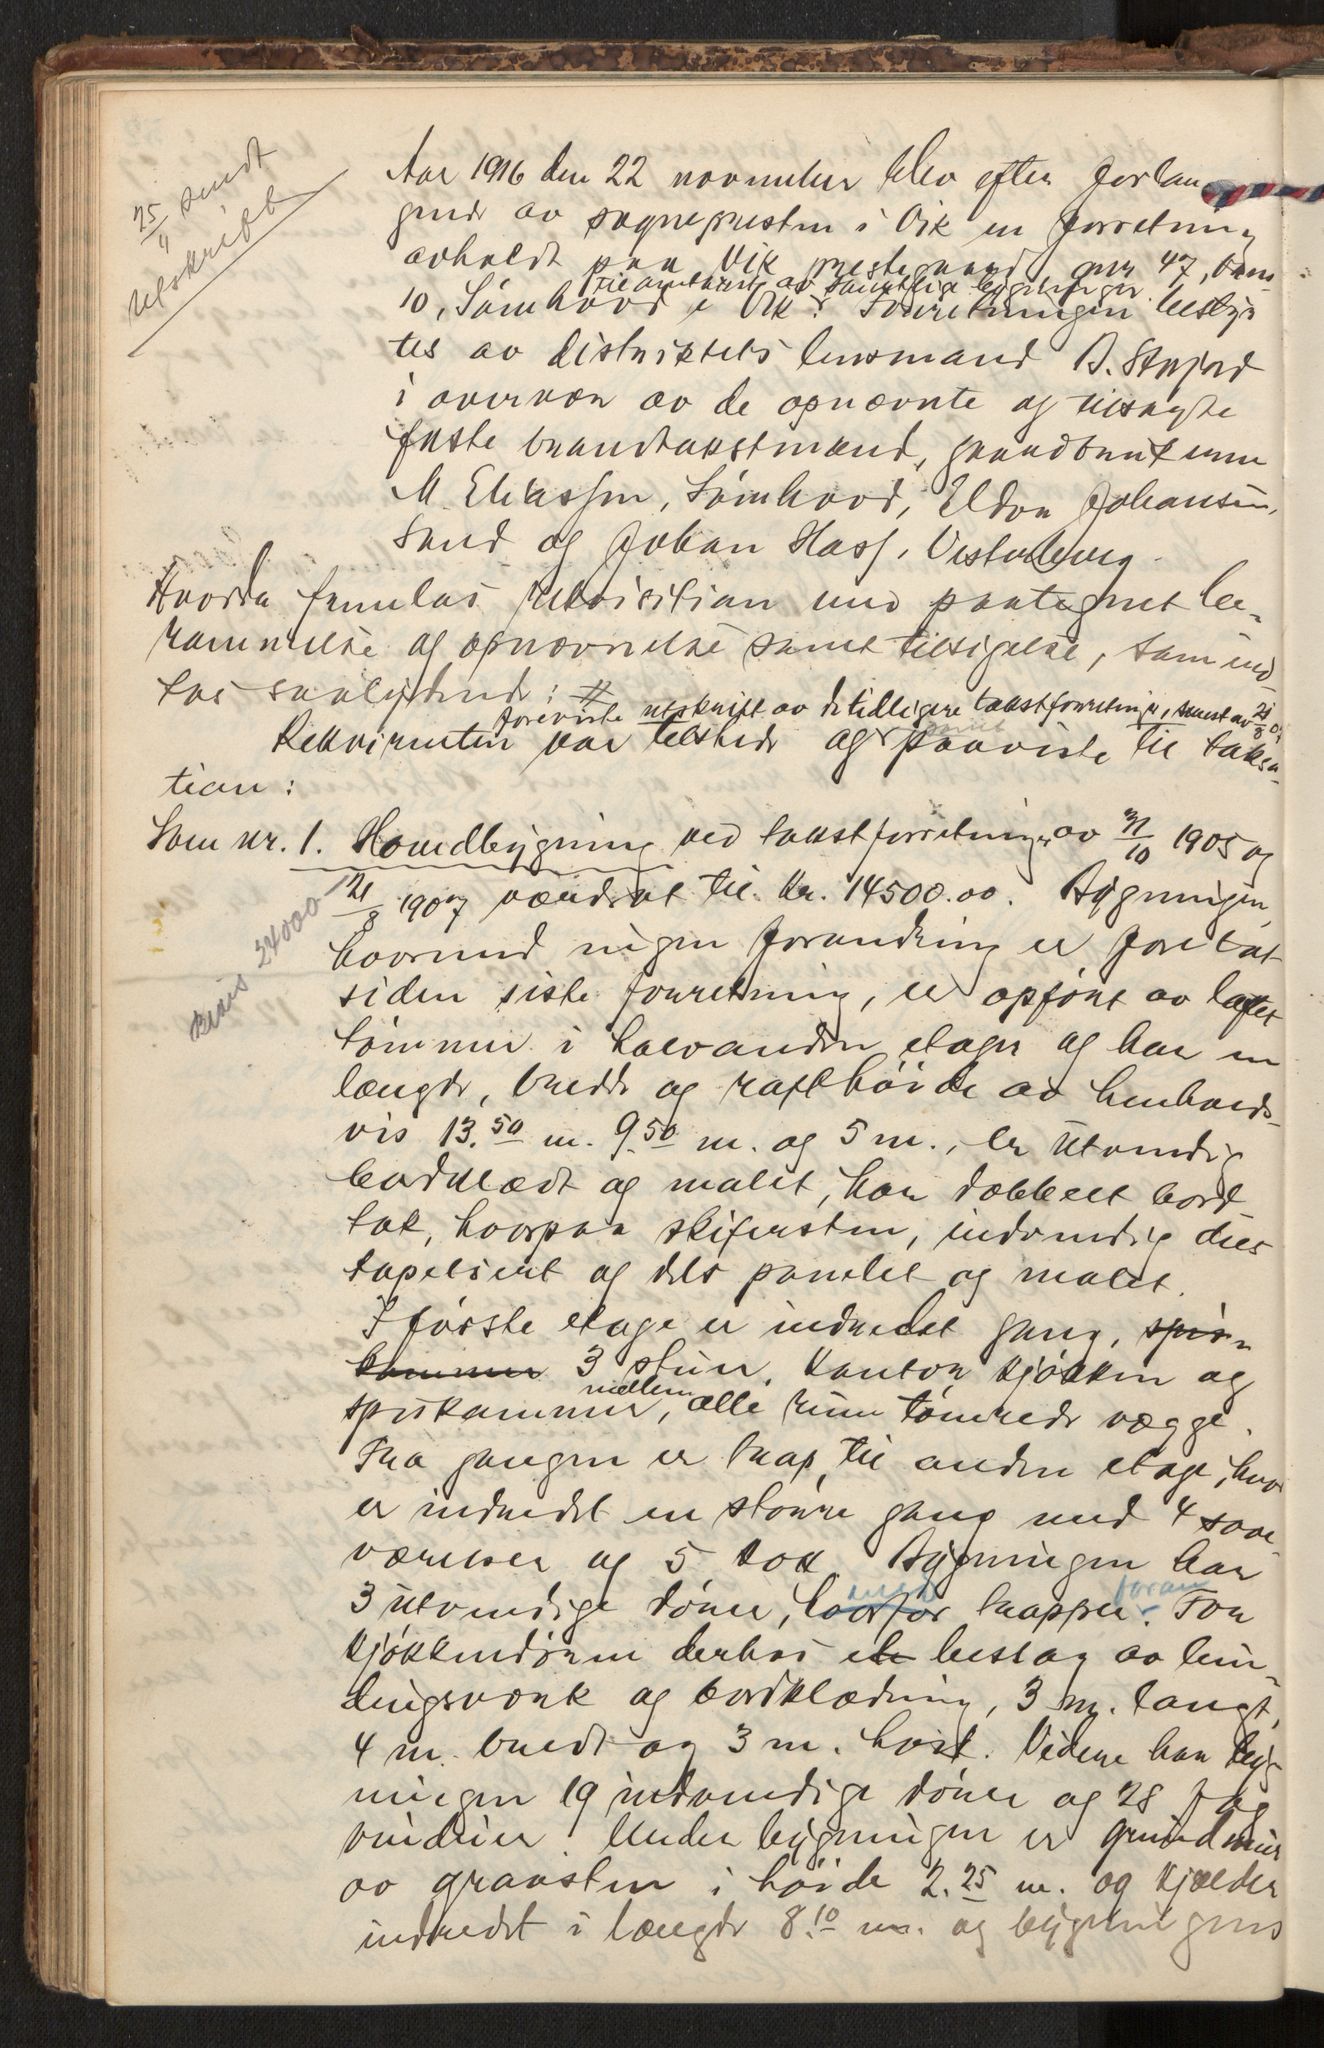 25/11 sendt
utskrift
Aar 1916 den 22 november blev efter forlan-
gende av sognepresten i Vik en forretning
avholdt paa Vik prestegaard, gnr 47, bnr
til omtakst av samtlige bygninger.
10, Sømhovd i Vik. Forretningen besty-
tes av distriktets lensmand B. Strøjord
i overvær av de opnævnte og tilsagte
faste brandtakstmænd, gaardbrukerne
M. Eliassen, Sømhovd, Eldor Johansen,
Sund og Johan Hass, Vesterberg.
Hvorda fremlas rekvisition med paategnet be-
rammelse og opnævnelse samt tilsigelse, som ind-
tas saalydende: #
foreviste utskrift av de tidligere takstforretninger, senest av 21/8 07
Rekvirenten var tilstede og paaviste til taksa-
tion:
Som nr. 1. Hovedbygning ved takstforretninger av 31/10 1905 og
21/8 1907 værdsat til kr. 14500.00. Bygningen,
Brus 24000
hvormed ingen forandring er foretat
siden siste forretning, er opført av laftet
tømmer i halvanden etager og har en
længde, bredde og rafthøide av henholds-
vis 13.50 m. 9.50 m. og 5 m., er utvendig
bordklædt og malet, har dobbelt bord-
tak, hvorpaa skifersten, indvendig dels
tapetsert og dels panelet og malet.
I første etage er indredet gang, spis-
kammer 3 stuer, kontor kjøkken og
mellem
spiskammer, alle rum tømrede vægge.
Fra gangen er trap til anden etage, hvor
er indredet en større gang med 4 sove-
værelser og 5 kott. Bygningen har
med foran
3 utvendige dører, hvorfor trapper. For
kjøkkendøren derhos et beslag av bin-
dingsverk og bordklædning, 3 m. langt,
4 m. bredt og 3 m. høit. Videre har byg-
ningen 19 indvendige dører og 28 fag
vinduer. Under bygningen er grundmur
av graasten i høide 2.25 m. og kjælder
indredet i længde 8.10 m. og bygningens